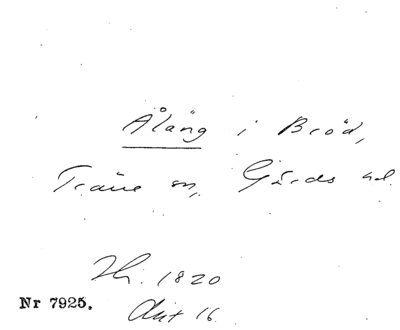 Åläng i Bröd,
Träne sn, Gärds hd.
Th. 1820
Nr 7925.
Akt 16.